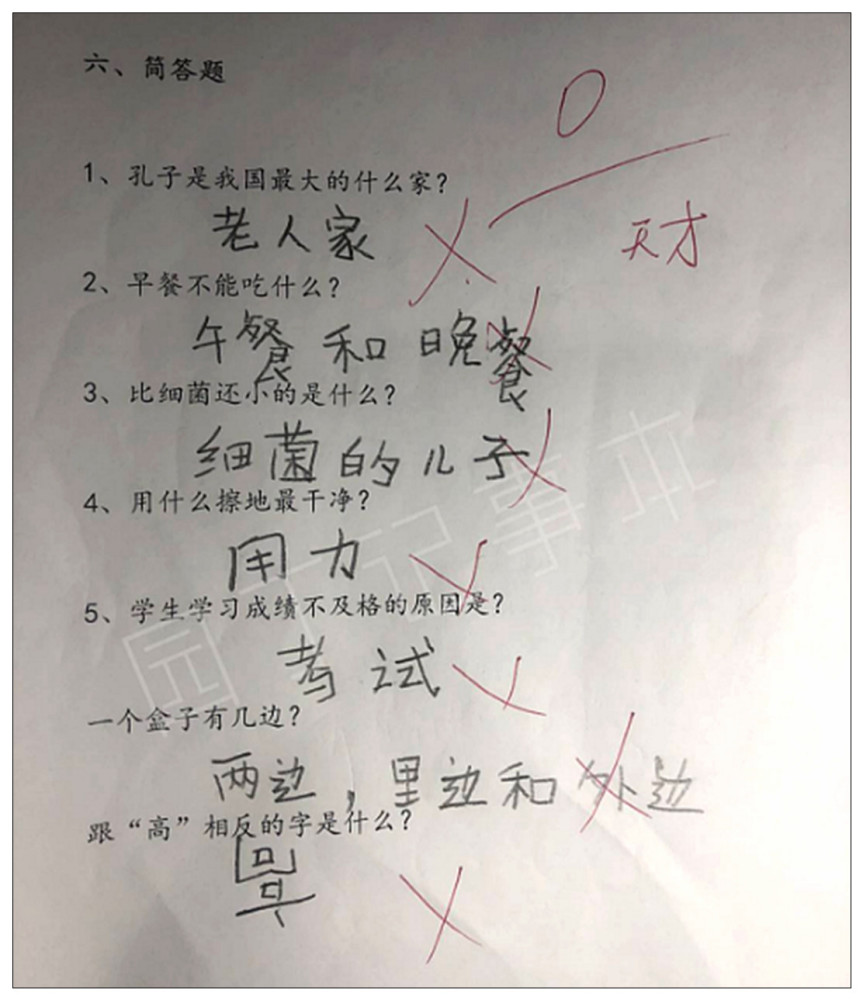 六、简答题
0
1、孔子是我国最大的什么家?
老人家
天才
2、早餐不能吃什么?
午餐和晚餐
3、比细菌还小的是什么?
细菌的儿子
4、用什么擦地最干净?
用力
5、学生学习成绩不及格的原因是?
考试
一个盒子有几边?
两边,里边和外边
跟“高”相反的字是什么?
园丁记事本